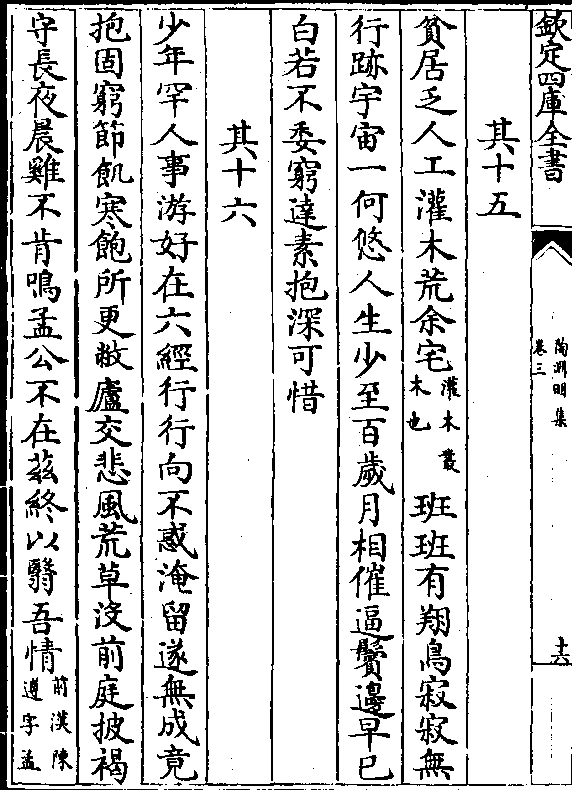 欽定四庫全書
陶淵明集
卷三
十六
其十五
貧居乏人工灌木荒余宅灌木叢木也班班有翔鳥寂寂無
行跡宇宙一何悠人生少至百歲月相催逼鬢邊早已
白若不委窮達素抱深可惜
其十六
少年罕人事游好在六經行行向不惑淹留遂無成竟
抱固窮節飢寒飽所更敝廬交悲風荒草沒前庭披褐
守長夜晨雞不肯鳴孟公不在茲終以翳吾情前漢陳遵字孟